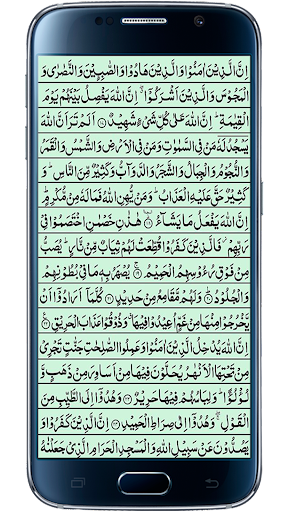 اِنَّ الَّذِیْنَ اٰمَنُوْا وَالَّذِیْنَ هَادُوْا وَالصّٰبِـِٕیْنَ وَالنَّصٰرٰی وَ
الْمَجُوْسَ وَالَّذِیْنَ اَشْرَكُوْۤا ۖۗ اِنَّ اللّٰهَ یَفْصِلُ بَیْنَهُمْ یَوْمَ
الْقِیٰمَةِ ؕ اِنَّ اللّٰهَ عَلٰی كُلِّ شَیْءٍ شَهِیْدٌ ۝ اَلَمْ تَرَ اَنَّ اللّٰهَ
یَسْجُدُ لَهٗ مَنْ فِی السَّمٰوٰتِ وَمَنْ فِی الْاَرْضِ وَالشَّمْسُ وَالْقَمَرُ
وَالنُّجُوْمُ وَالْجِبَالُ وَالشَّجَرُ وَالدَّوَآبُّ وَكَثِیْرٌ مِّنَ النَّاسِ ؕ وَ
كَثِیْرٌ حَقَّ عَلَیْهِ الْعَذَابُ ؕ وَمَنْ یُّهِنِ اللّٰهُ فَمَا لَهٗ مِنْ مُّكْرِمٍ ؕ
اِنَّ اللّٰهَ یَفْعَلُ مَا یَشَآءُ ۝ هٰذٰنِ خَصْمٰنِ اخْتَصَمُوْا فِیْ
رَبِّهِمْ ؗ فَالَّذِیْنَ كَفَرُوْا قُطِّعَتْ لَهُمْ ثِیَابٌ مِّنْ نَّارٍ ؕ یُصَبُّ
مِنْ فَوْقِ رُءُوْسِهِمُ الْحَمِیْمُ ۝ یُصْهَرُ بِهٖ مَا فِیْ بُطُوْنِهِمْ
وَالْجُلُوْدُ ۝ وَلَهُمْ مَّقَامِعُ مِنْ حَدِیْدٍ ۝ كُلَّمَاۤ اَرَادُوْۤا اَنْ
یَّخْرُجُوْا مِنْهَا مِنْ غَمٍّ اُعِیْدُوْا فِیْهَا ۗ وَذُوْقُوْا عَذَابَ الْحَرِیْقِ ۝
اِنَّ اللّٰهَ یُدْخِلُ الَّذِیْنَ اٰمَنُوْا وَعَمِلُوا الصّٰلِحٰتِ جَنّٰتٍ تَجْرِیْ
مِنْ تَحْتِهَا الْاَنْهٰرُ یُحَلَّوْنَ فِیْهَا مِنْ اَسَاوِرَ مِنْ ذَهَبٍ وَّ
لُؤْلُؤًا ؕ وَلِبَاسُهُمْ فِیْهَا حَرِیْرٌ ۝ وَهُدُوْۤا اِلَی الطَّیِّبِ مِنَ
الْقَوْلِ ۖۚ وَهُدُوْۤا اِلٰی صِرَاطِ الْحَمِیْدِ ۝ اِنَّ الَّذِیْنَ كَفَرُوْا وَ
یَصُدُّوْنَ عَنْ سَبِیْلِ اللّٰهِ وَالْمَسْجِدِ الْحَرَامِ الَّذِیْ جَعَلْنٰهُ